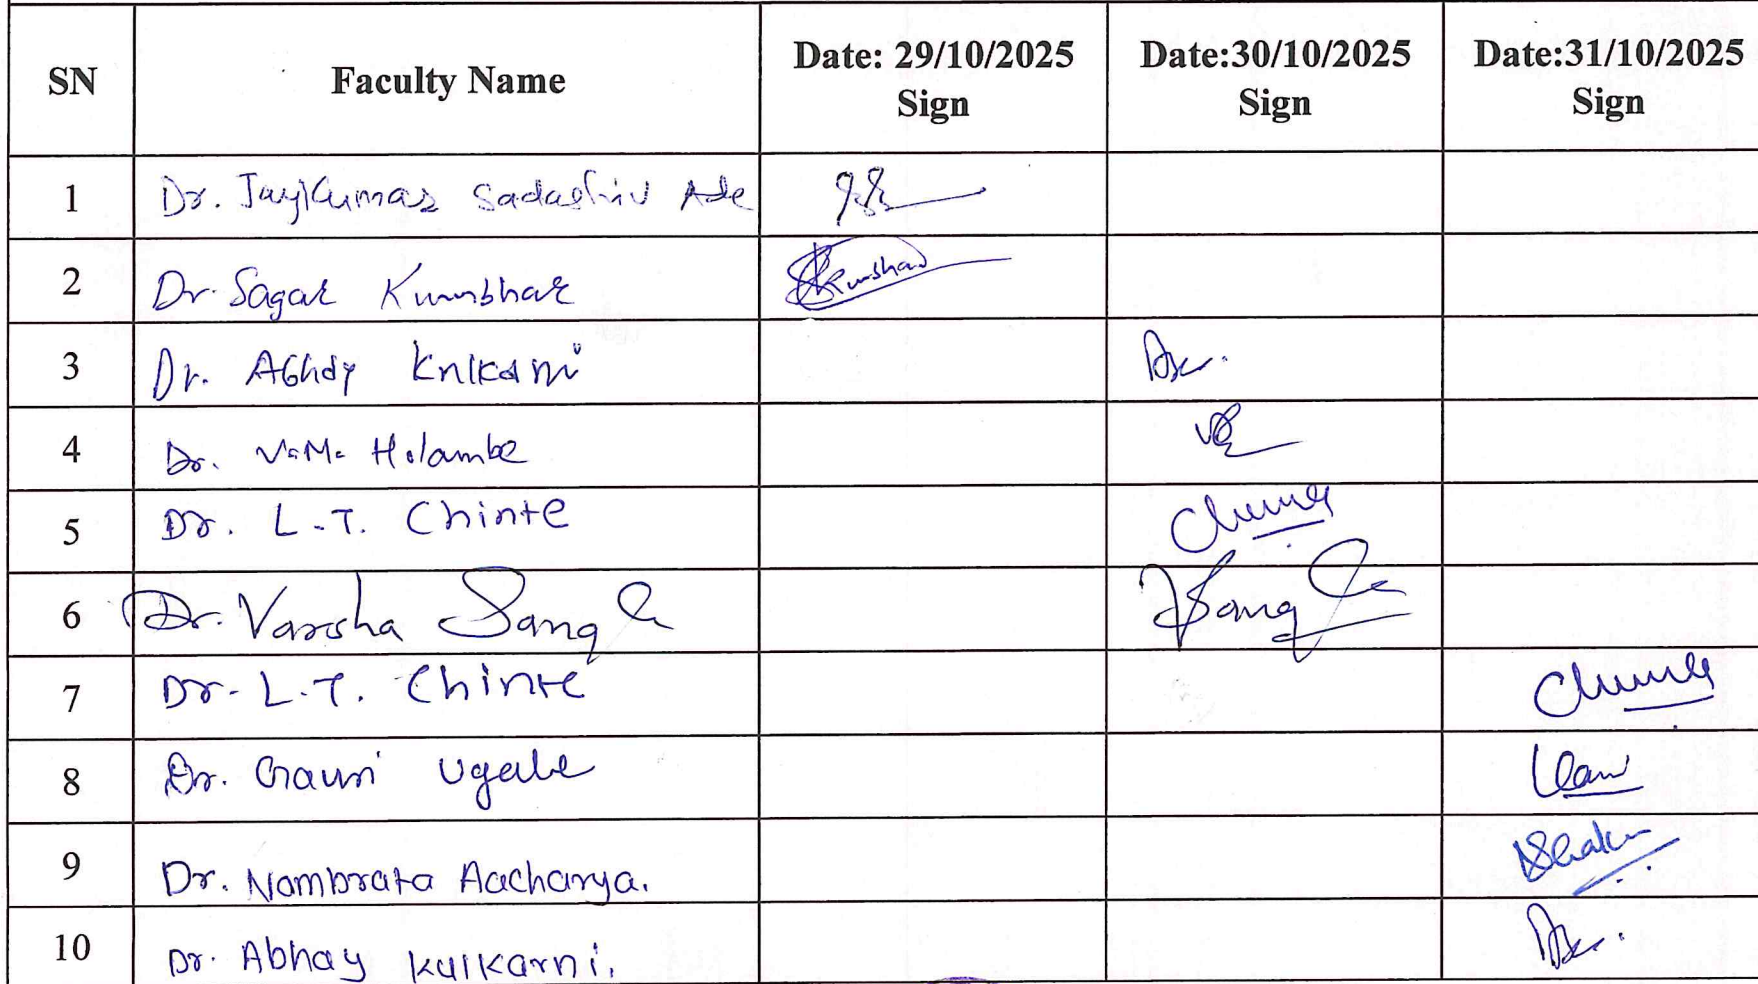 SN Faculty Name Date: 29/10/2025 Sign Date:30/10/2025 Sign Date:31/10/2025 Sign
1 Dr. Jaykumar Sadashiv Ade
2 Dr. Sagar Kumbhar
3 Dr. Abhay Knlkarni
4 Dr. V.M. Holambe
5 Dr. L.T. Chinte
6 Dr. Varsha Sangle Sangle
7 Dr. L.T. Chinte
8 Dr. Gauri Ugale
9 Dr. Nambrata Aacharya.
10 Dr. Abhay Kulkarni.